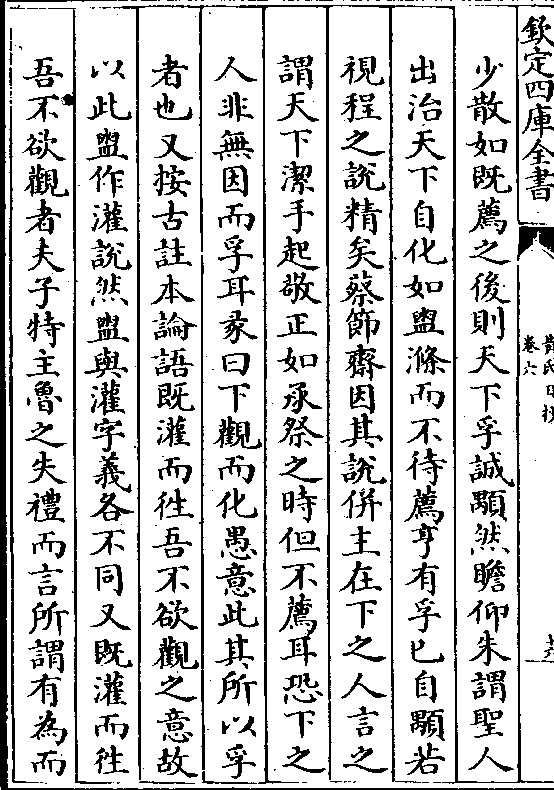 欽定四庫全書
卷六
少散如既薦之後則天下孚誠顒然瞻仰朱謂聖人
出治天下自化如盥滌而不待薦亨有孚已自顒若
視程之說精矣蔡節齋因其說併主在下之人言之
謂天下潔手起敬正如承祭之時但不薦耳恐下之
人非無因而孚耳彖曰下觀而化愚意此其所以孚
者也又按古註本論語既灌而徃吾不欲觀之意故
以此盥作灌說然盥與灌字義各不同又既灌而徃
吾不欲觀者夫子特主魯之失禮而言所謂有為而